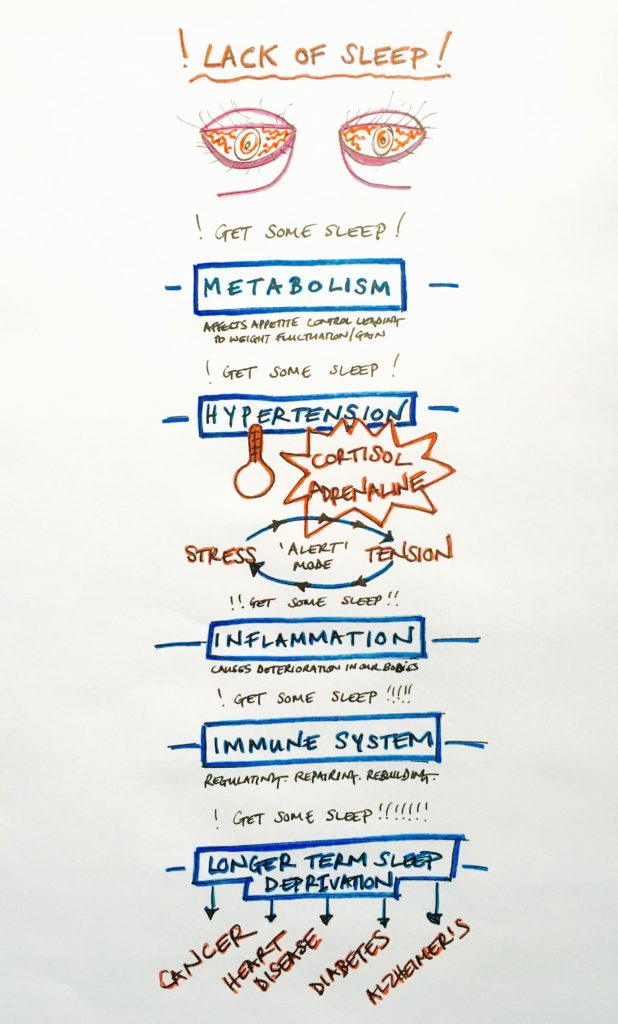 ! LACK OF SLEEP!
! GET SOME SLEEP!
METABOLISM
AFFECTS APPETITE CONTROL LEADING
TO WEIGHT FLUCTUATION/GAIN
! GET SOME SLEEP!
HYPERTENSION
CORTISOL
ADRENALINE
STRESS 'ALERT' TENSION
MODE
!! GET SOME SLEEP!!
INFLAMMATION
CAUSES DETERIORATION IN OUR BODIES
! GET SOME SLEEP!!!!!
IMMUNE SYSTEM
REGULATING. REPAIRING. REBUILDING.
! GET SOME SLEEP!!!!!!!
LONGER TERM SLEEP
DEPRIVATION
CANCER
HEART
DISEASE
DIABETES
ALZHEIMER'S